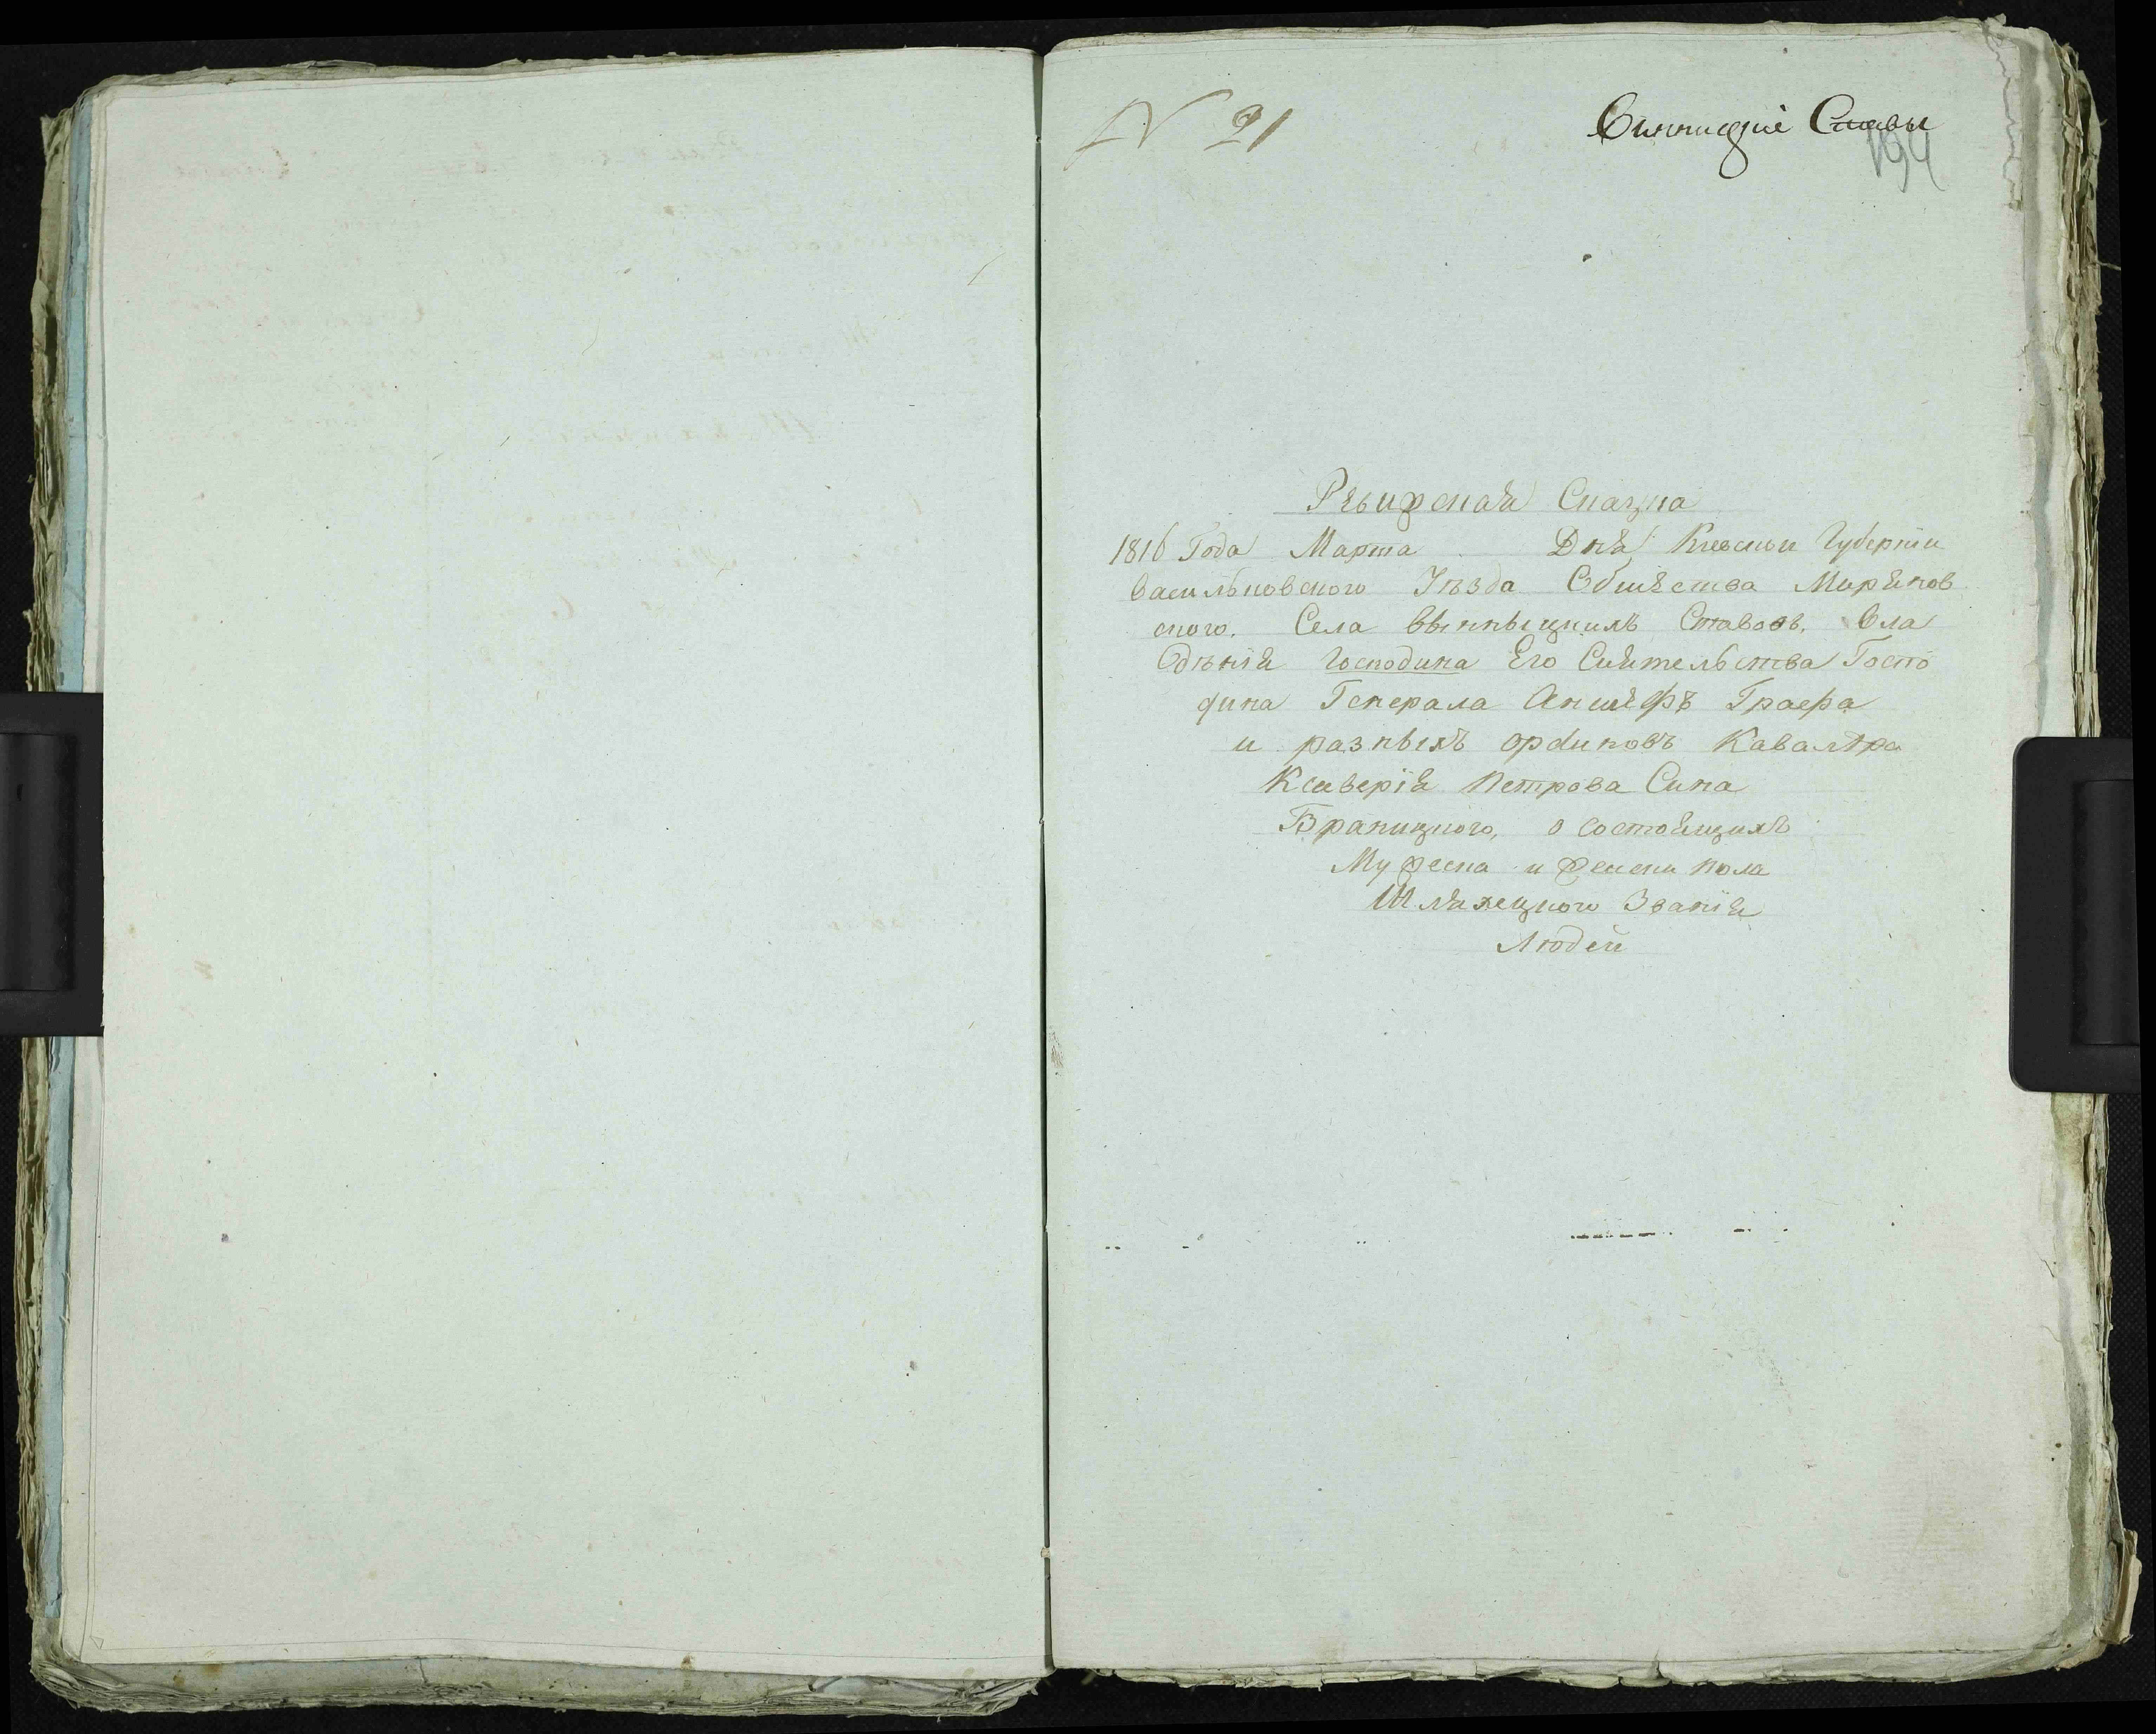 N 21
Винницкіе Ставы
194
Ревизская Сказка
1816 Года Марта Дня Киевской Губерніи
Васильковского Уезда Общества Миринов
ского. Села Вынныцкихъ Ставовъ, Вла
дѣнія Господина Его Сиятельства Госпо
дина Генерала Аншефъ Графа
и разныхъ ординовъ Кавалѣра
Ксаверія Петрова Сина
Браницкого, о состоящихъ
Мужеска и Женски пола
Шляхецкого Званія
Людей